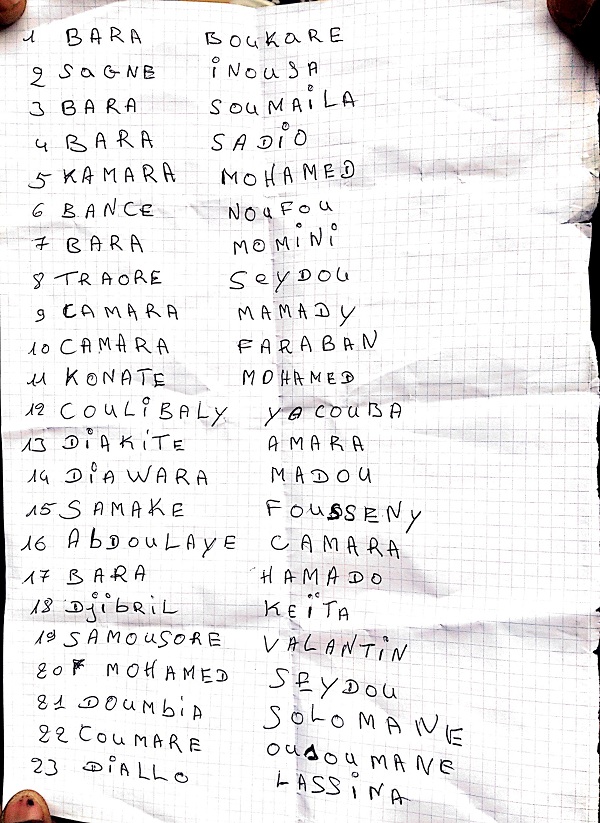 1 BARA BOUKARE
2 SAGNE iNOUSA
3 BARA SOUMAiLA
4 BARA SADiO
5 KAMARA MOHAMED
6 BANCE NOUFOU
7 BARA MOMiNi
8 TRAORE SeYDOU
9 CAMARA MAMADY
10 CAMARA FARABAN
11 KONATE MOHAMED
12 COULiBALY YACOUBA
13 DiAKiTE AMARA
14 DiAWARA MADOU
15 SAMAKE FOUSSENY
16 AbDOULAYE CAMARA
17 BARA HAMADO
18 DjibRiL KEÏTA
19 SAMOUSORE VALANTiN
20 MOHAMED SEYDOU
21 DOUMbiA SOLOMANE
22 COUMARE OUSOUMANE
23 DiALLO LASSiNA